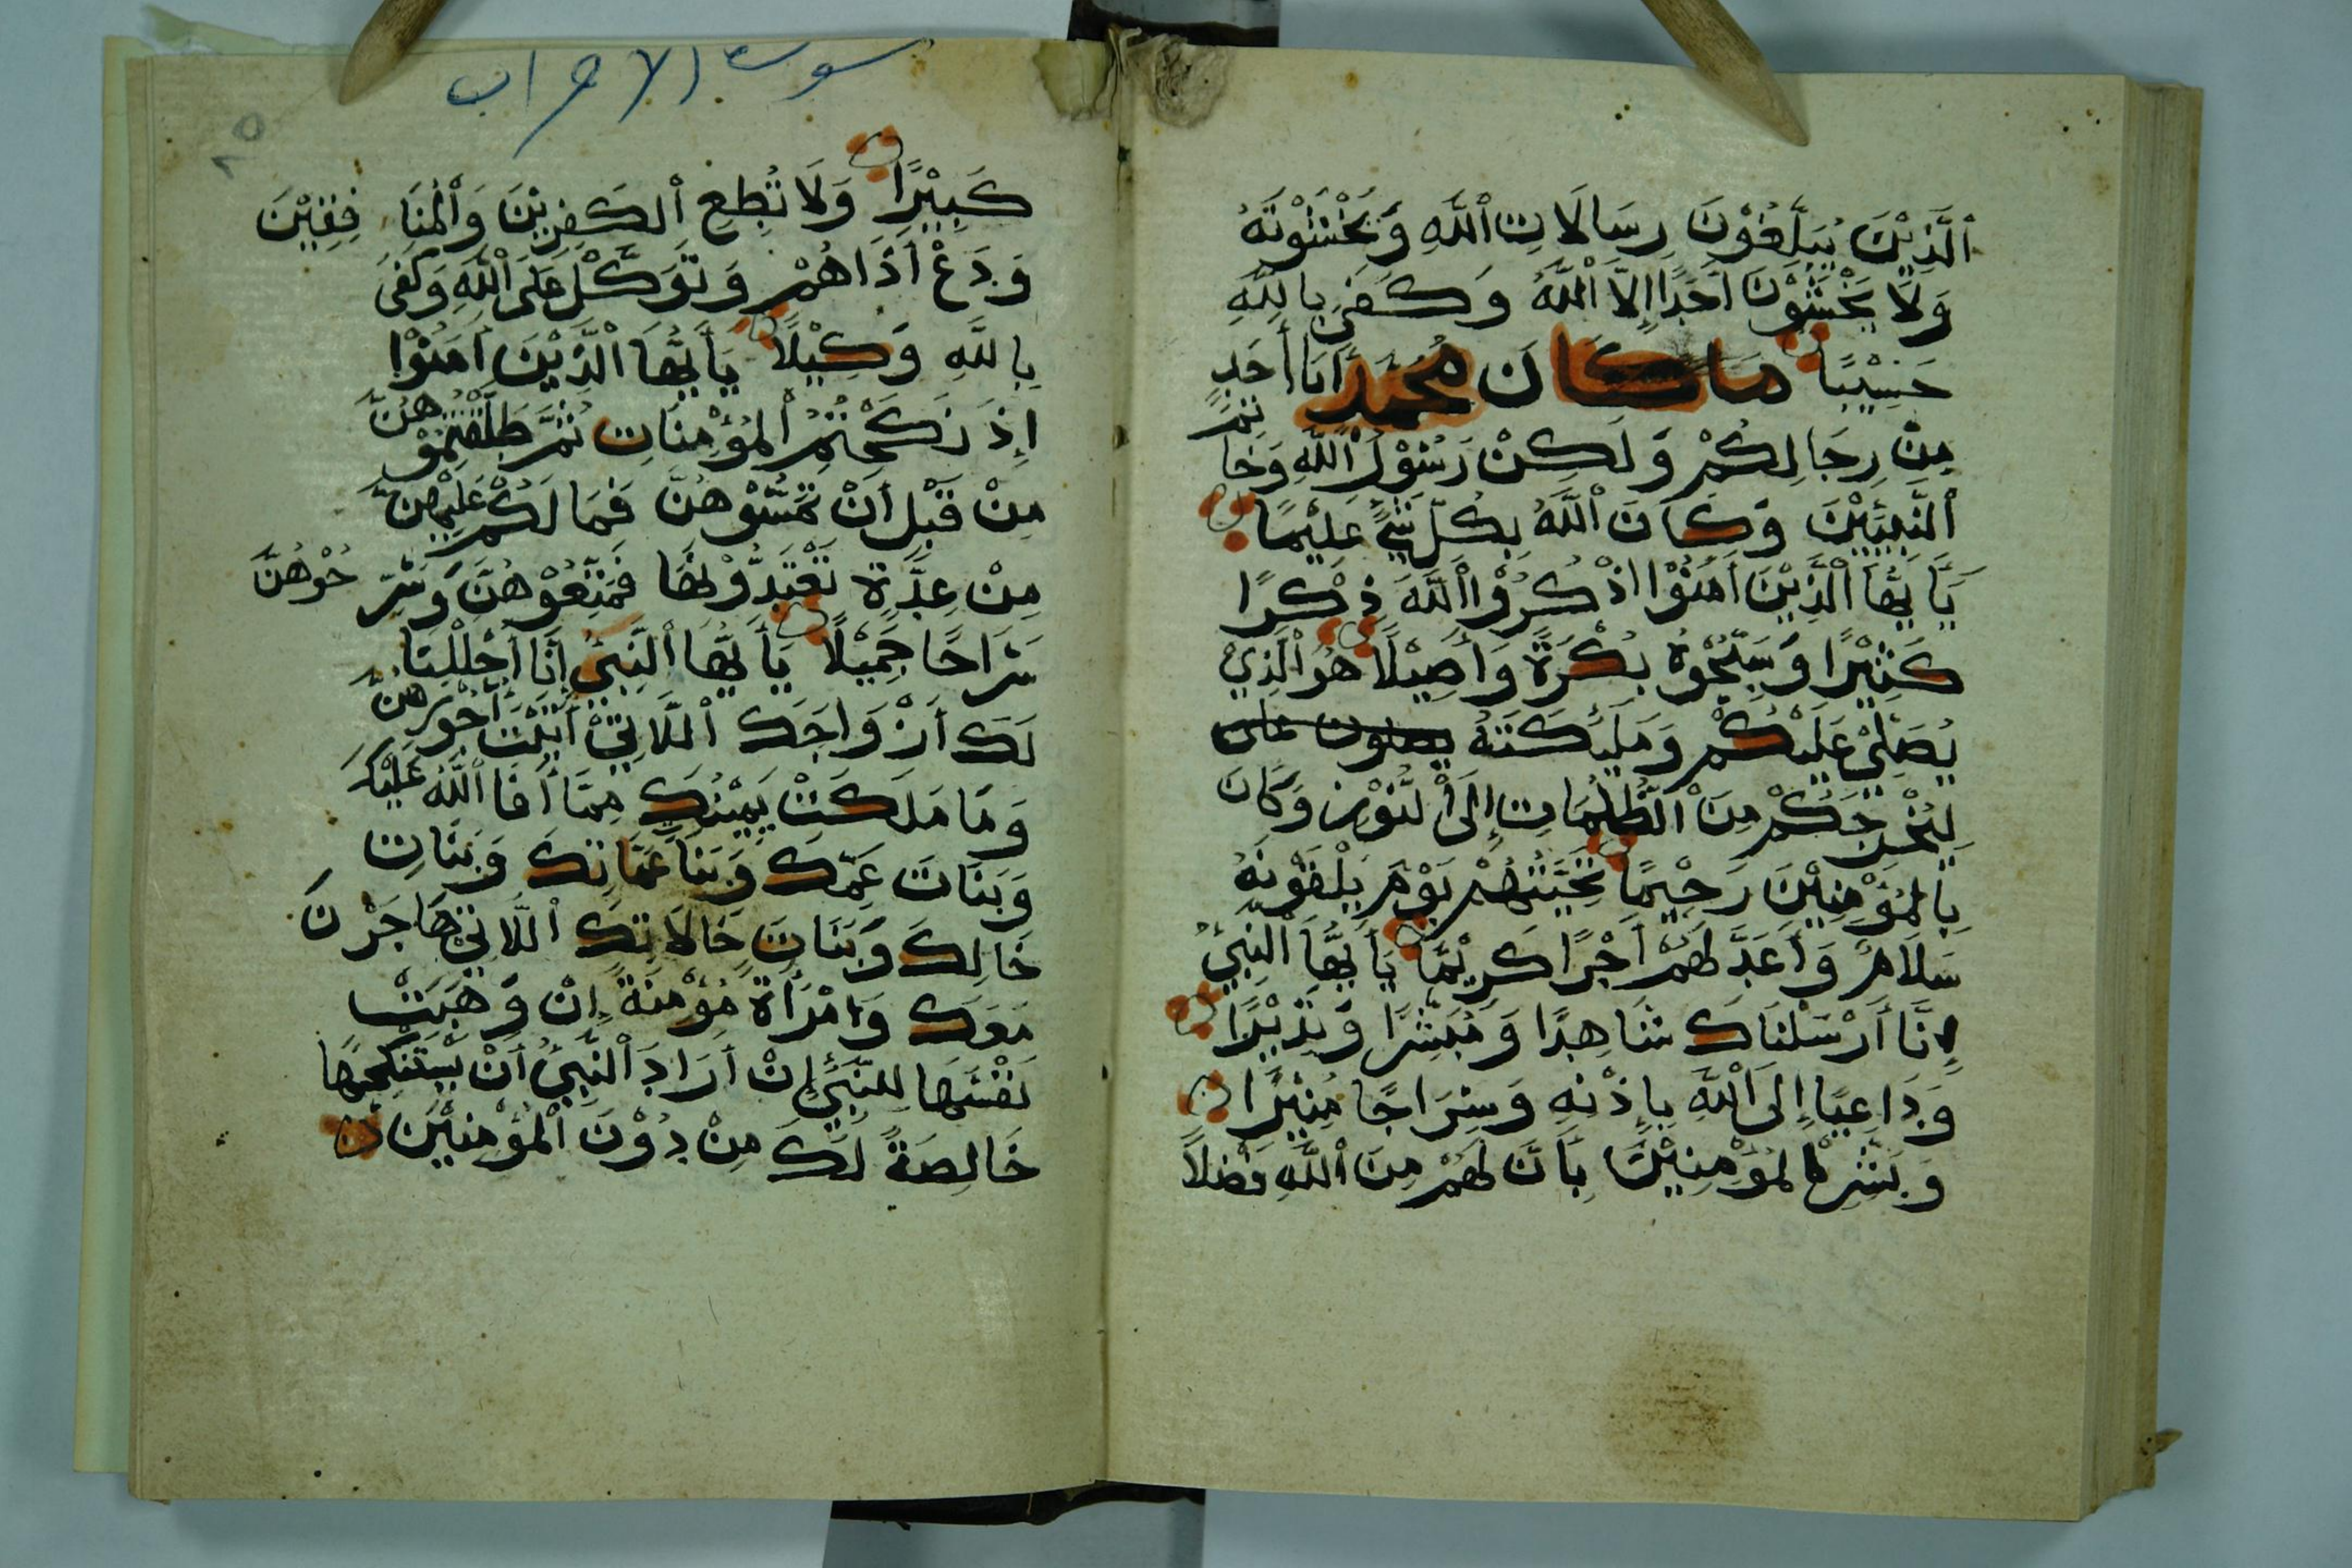 ٱلَّذِيْنَ يُبَلِّغُوْنَ رِسَالَاتِ ٱللَّهِ وَيَخْشَوْنَهُ
وَلَا يَخْشَوْنَ أَحَدًا إِلَّا ٱللَّهُ وَكَفَىٰ بِاللَّهِ
حَسِيْبًا مَا كَانَ مُحَمَّدٌ أَبَا أَحَدٍ
مِنْ رِجَالِكُمْ وَلَكِنْ رَسُوْلَ ٱللَّهِ وَخَاتَمَ
ٱلنَّبِيِّيْنَ وَكَانَ ٱللَّهُ بِكُلِّ شَيْءٍ عَلِيْمًا
يَٰٓأَيُّهَا ٱلَّذِيْنَ أَمَنُوْا اذْكُرُوْا ٱللَّهَ ذِكْرًا
كَثِيْرًا وَسَبِّحُوْهُ بُكْرَةً وَأَصِيْلًا هُوَ ٱلَّذِيْ
يُصَلِّيْ عَلَيْكُمْ وَمَلَٰئِكَتُهُ يصلون على
لِيُخْرِجَكُمْ مِنَ ٱلظُّلُمَاتِ إِلَى ٱلنُّوْرِ وَكَانَ
بِالْمُؤْمِنِيْنَ رَحِيْمًا تَحِيَّتُهُمْ يَوْمَ يَلْقَوْنَهُ
سَلَامٌ وَأَعَدَّ لَهُمْ أَجْرًا كَرِيْمًا يَا أَيُّهَا ٱلنَّبِيُّ
إِنَّا أَرْسَلْنَاكَ شَاهِدًا وَمُبَشِّرًا وَنَذِيْرًا
وَدَاعِيًا إِلَى ٱللَّهِ بِإِذْنِهِ وَسِرَاجًا مُنِيْرًا
وَبَشِّرِ ٱلْمُؤْمِنِيْنَ بِأَنَّ لَهُمْ مِنَ ٱللَّهِ فَضْلًا
سورة الاحزاب
٨٥
كَبِيْرًا وَلَا تُطِعِ ٱلْكَٰفِرِيْنَ وَٱلْمُنَافِقِيْنَ
وَدَعْ أَذَاهُمْ وَتَوَكَّلْ عَلَى ٱللَّهِ وَكَفَىٰ
بِاللَّهِ وَكِيْلًا يَا أَيُّهَا ٱلَّذِيْنَ أَمَنُوْا
إِذَ نَكَحْتُمُ ٱلْمُؤْمِنَاتِ ثُمَّ طَلَّقْتُمُوْهُنَّ
مِنْ قَبْلِ أَنْ تَمَسُّوْهُنَّ فَمَا لَكُمْ عَلَيْهِنَّ
مِنْ عِدَّةٍ تَعْتَدُّوْنَهَا فَمَتِّعُوْهُنَّ وَسَرِّحُوْهُنَّ
سَرَاحًا جَمِيْلًا يَا أَيُّهَا ٱلنَّبِيُّ إِنَّا أَحْلَلْنَا
لَكَ أَزْوَاجَكَ ٱللَّاتِيْ أَتَيْتَ أُجُوْرَهُنَّ
وَمَا مَلَكَتْ يَمِيْنُكَ مِمَّا أَفَا ٱللَّهُ عَلَيْكَ
وَبَنَاتَ عَمِّكَ وَبَنَا عَمَّاتِكَ وَبَنَاتِ
خَالِكَ وَبَنَاتَ خَالَاتِكَ ٱللَّاتِيْ هَاجَرْنَ
مَعَكَ وَامْرَأَةً مُؤْمِنَةً إِنْ وَهَبَتْ
نَفْسَهَا لِلنَّبِيِّ إِنْ أَرَادَ ٱلنَّبِيُّ أَنْ يَسْتَنْكِحَهَا
خَالِصَةً لَكَ مِنْ دُوْنَ ٱلْمُؤْمِنِيْنَ